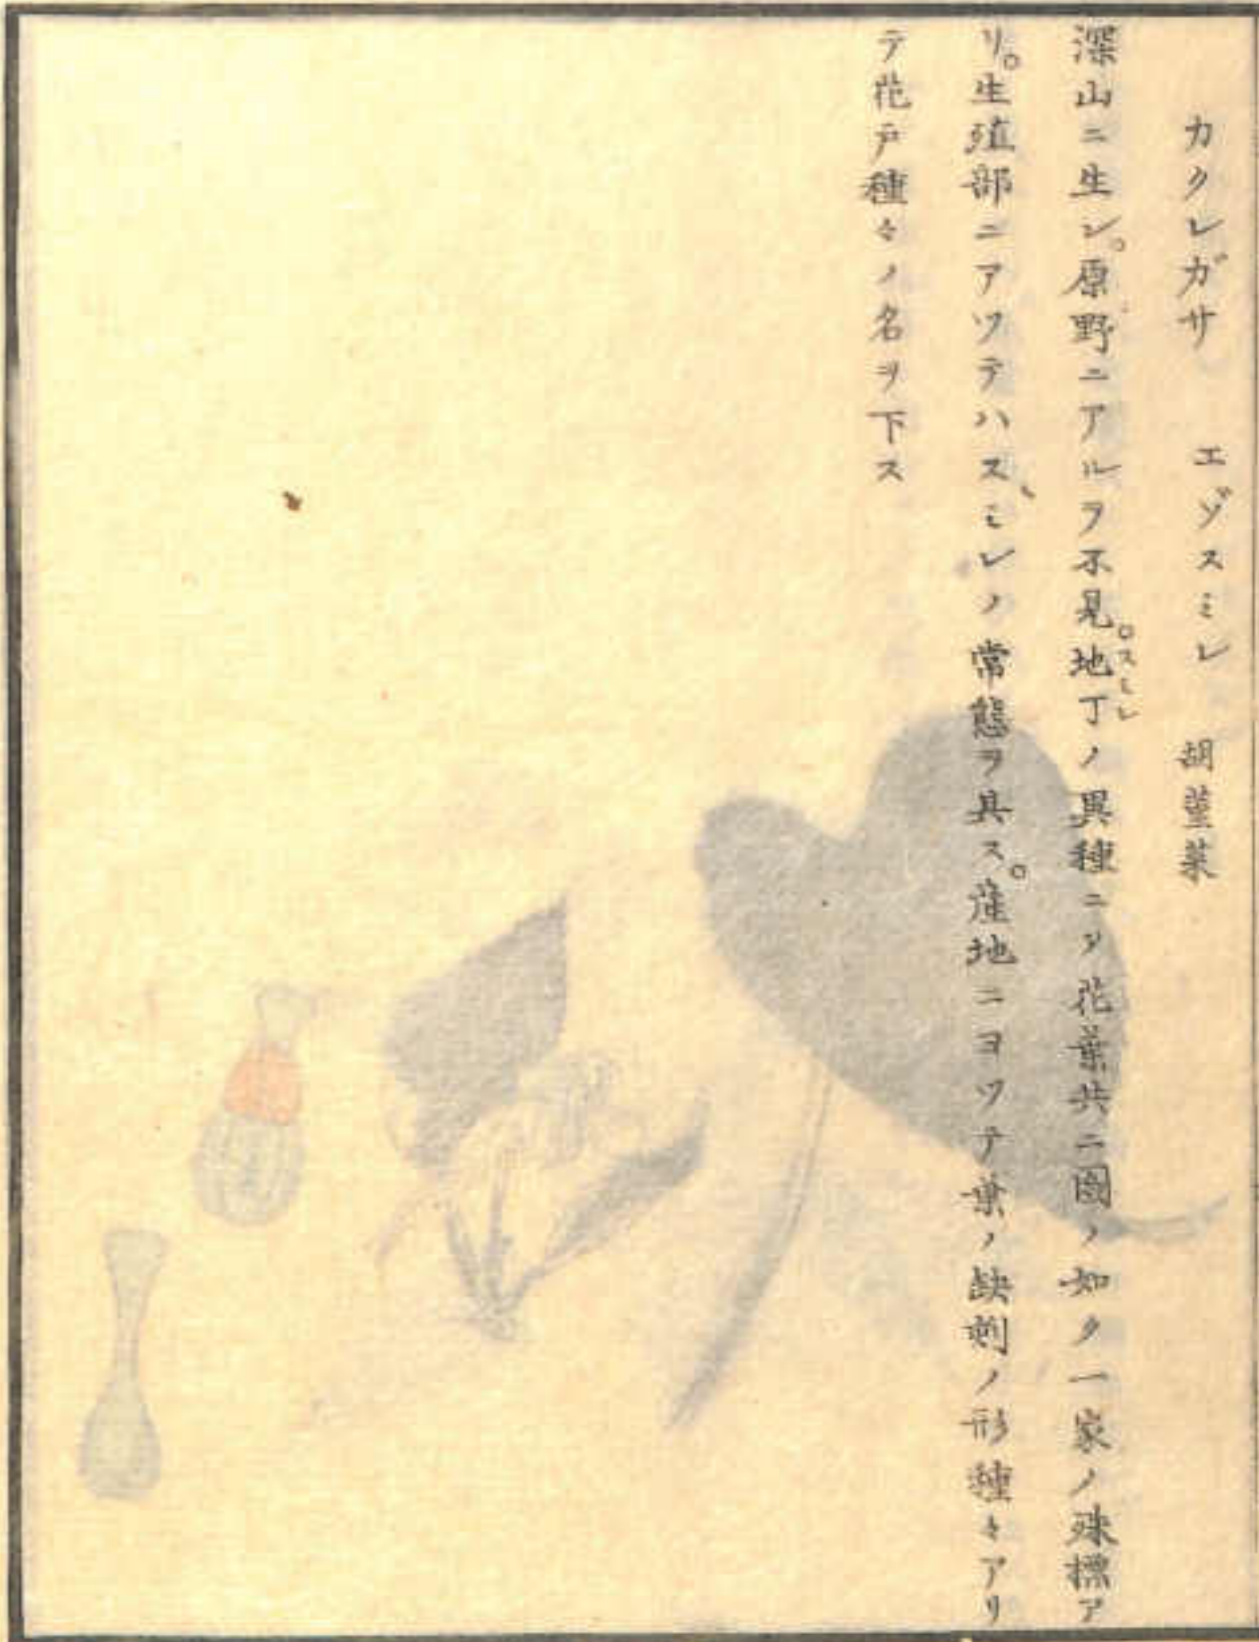 カクレガサ　エゾスミレ　胡菫菜
深山ニ生シ。原野ニアルヲ不見。地丁ノ異種ニ〆花葉共ニ圖ノ如ク一家ノ殊標ア
スミレ
リ。生殖部ニアツテハスミレノ常態ヲ具ス。産地ニヨツテ葉ノ缺刻ノ形種々アリ
テ花戸種々ノ名ヲ下ス